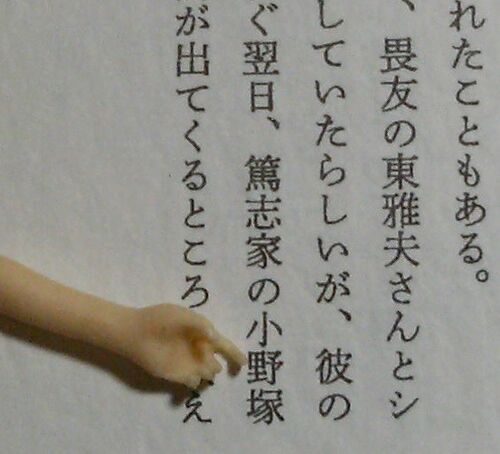 れたこともある。
、畏友の東雅夫さんとシ
していたらしいが、彼の
ぐ翌日、篤志家の小野塚
が出てくるところ え